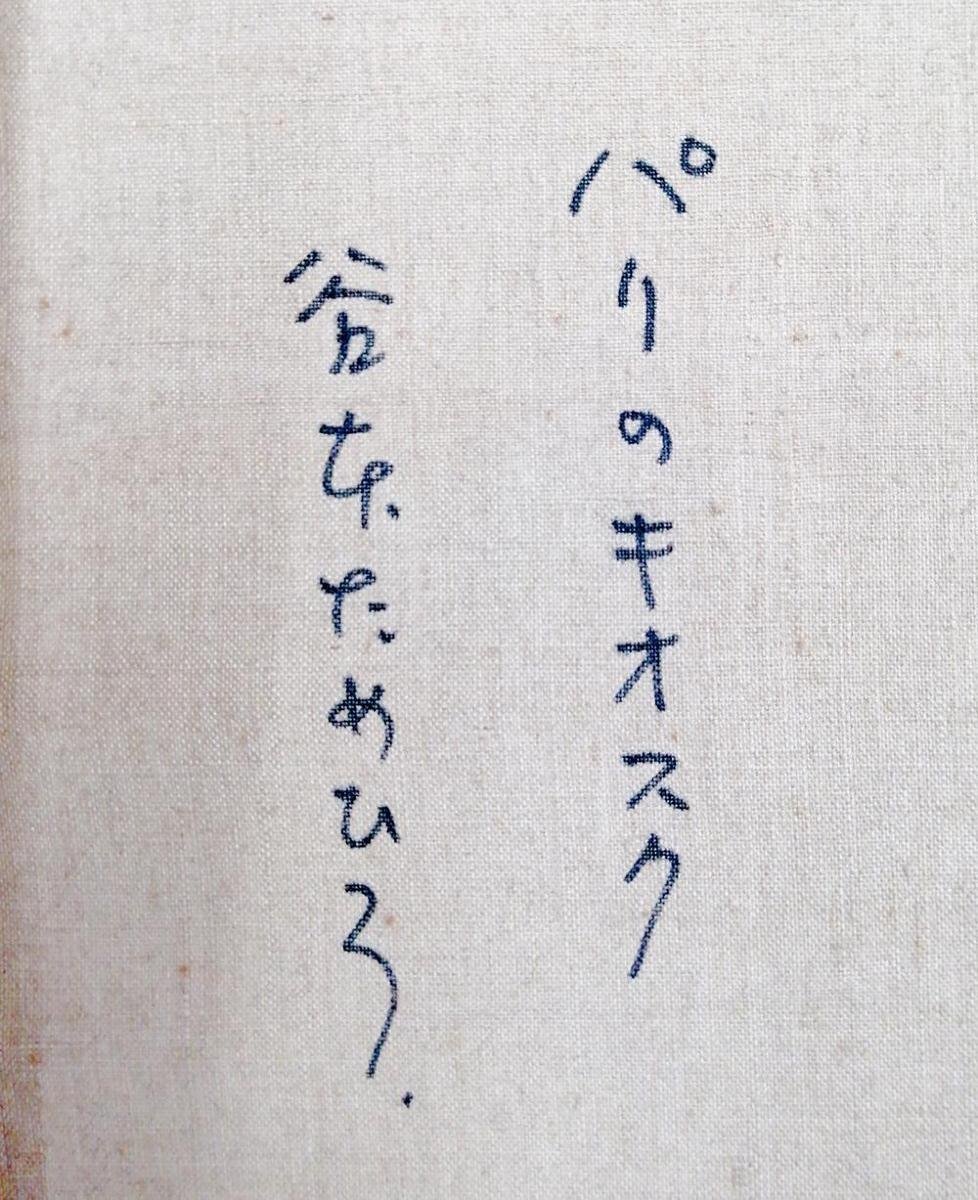 パリのキオスク
谷本ためひろ.